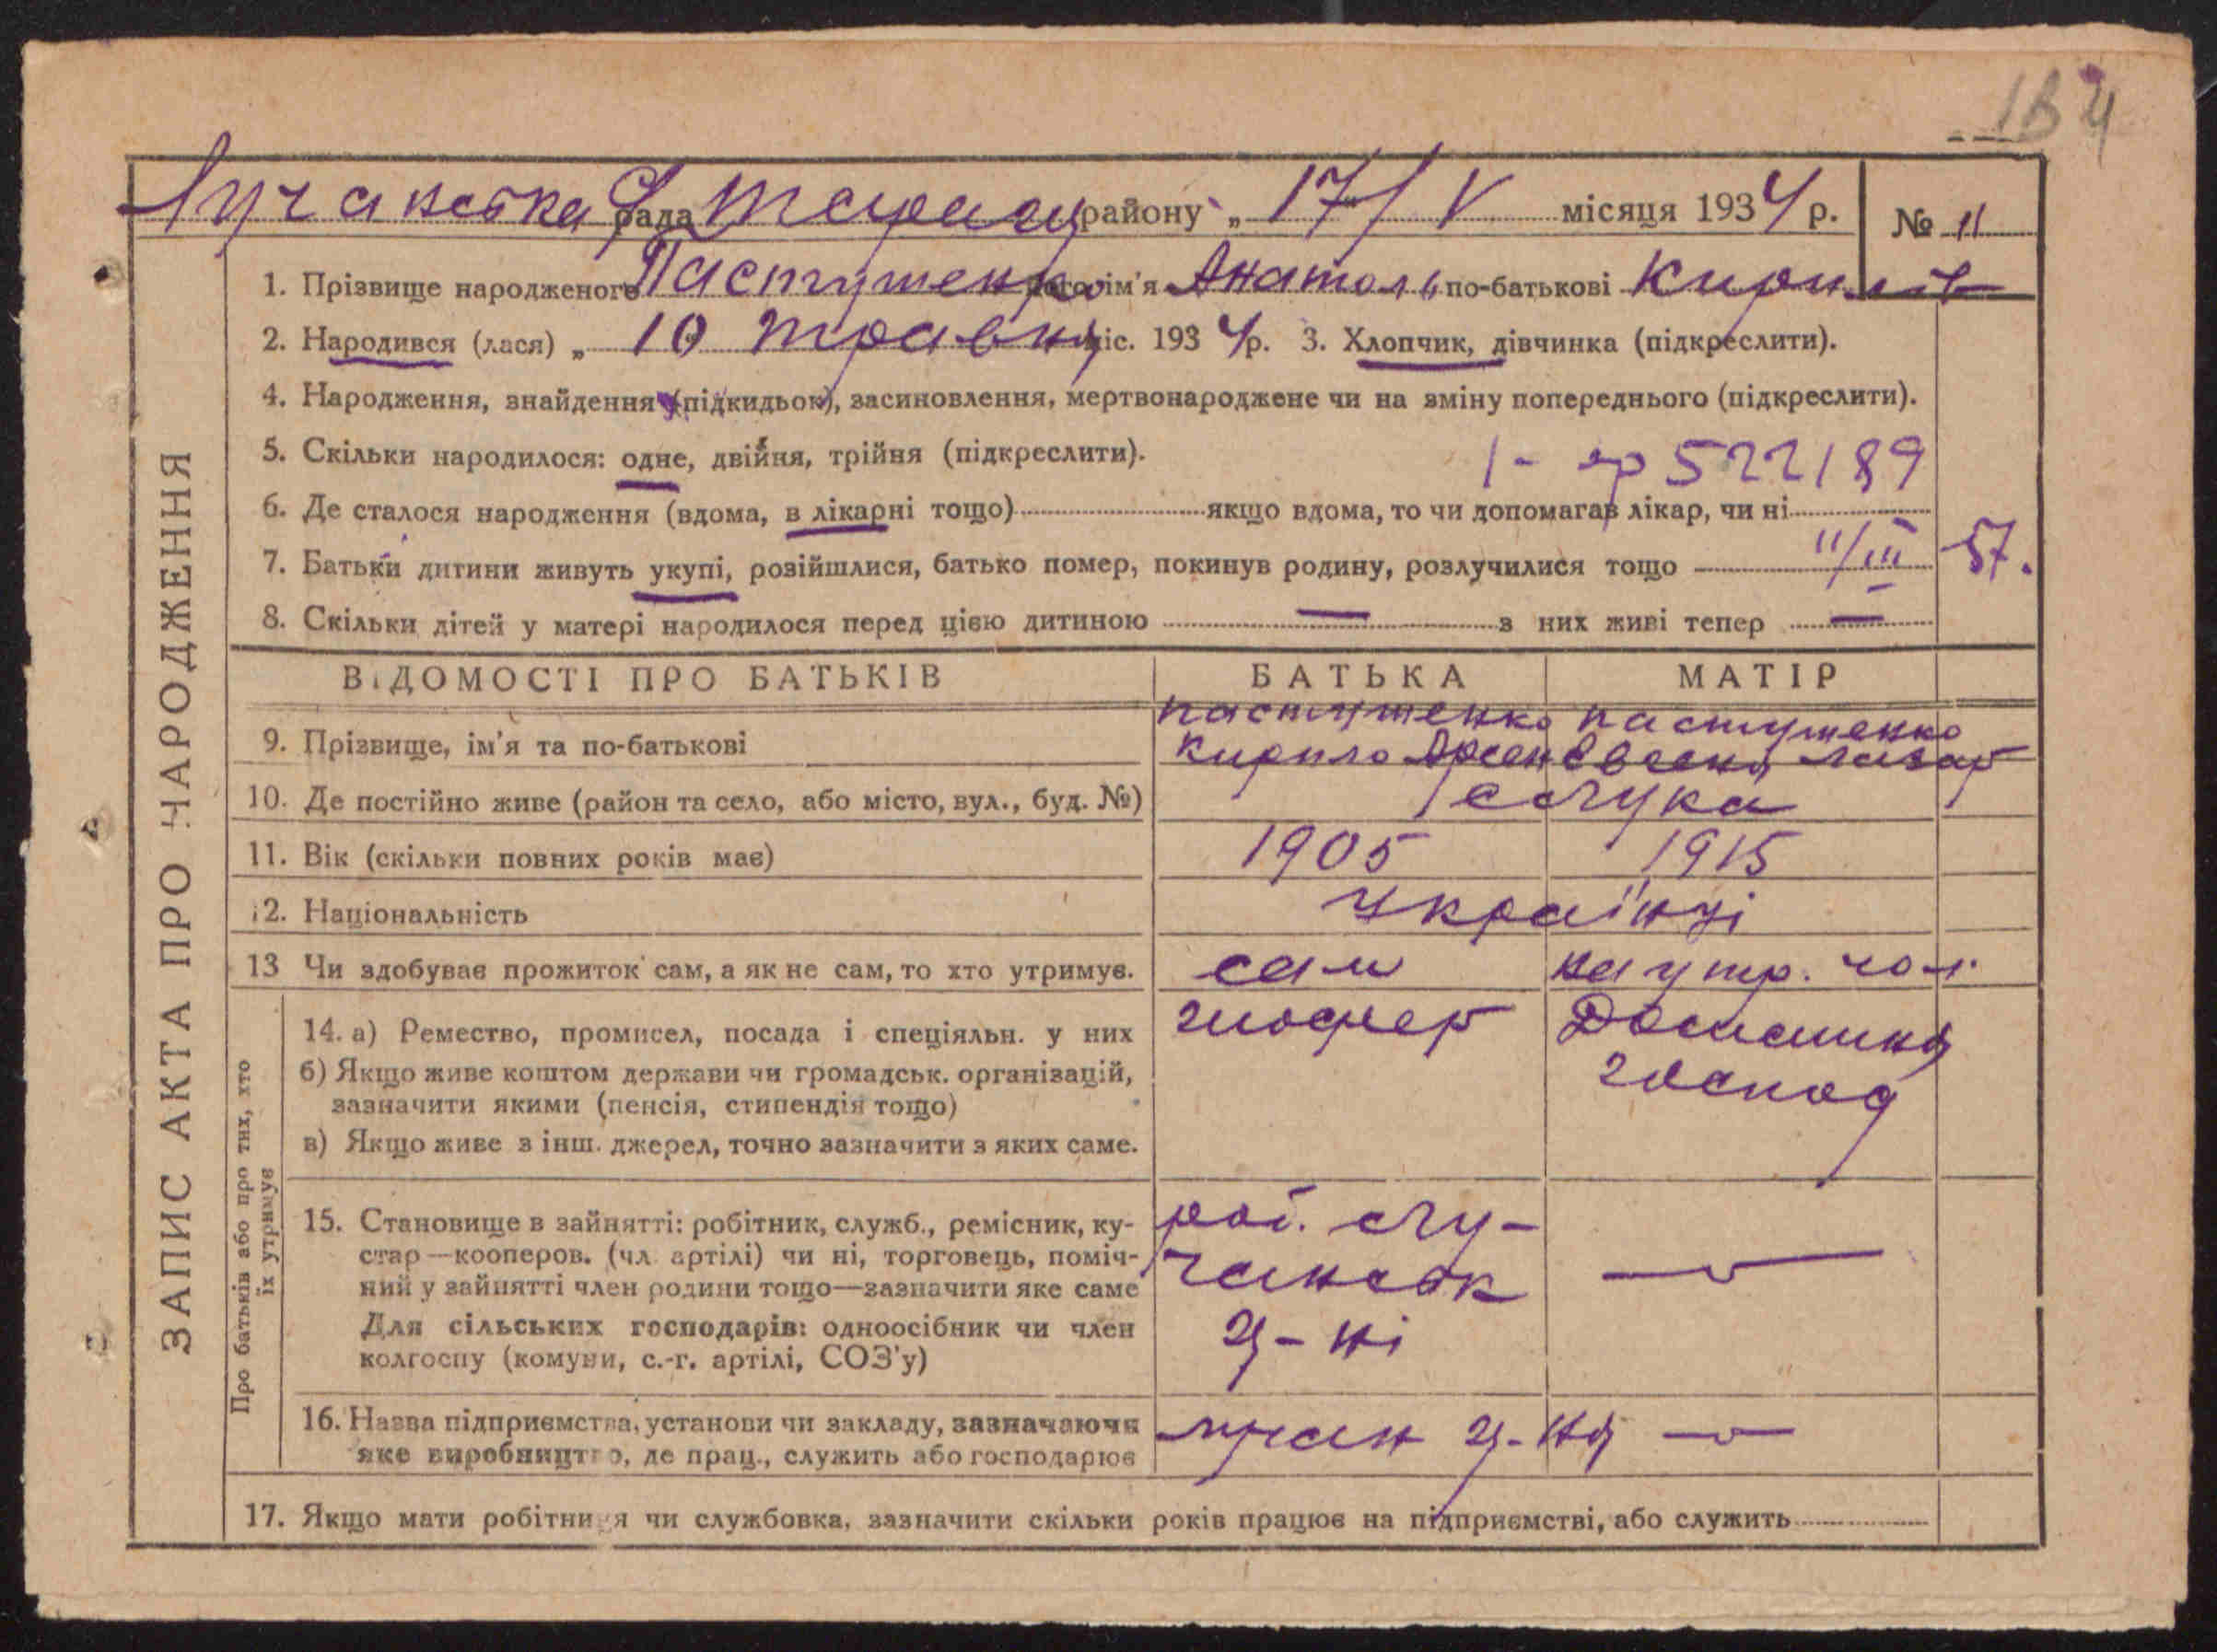 184
Лучанська рада Таращ району „ 17/V місяця 1934 р. № 11
ЗАПИС АКТА ПРО НАРОДЖЕННЯ
1. Прізвище народженого Пастушенко його ім'я Анатолій по-батькові Кирилів
2. Народився (лася) „ 10 травня міс. 1934 р. 3. Хлопчик, дівчинка (підкреслити).
4. Народження, знайдення (підкидьок), засиновлення, мертвонароджене чи на зміну попереднього (підкреслити).
5. Скільки народилося: одне, двійня, трійня (підкреслити).
522189
6. Де сталося народження (вдома, в лікарні тощо) якщо вдома, то чи допомагав лікар, чи ні
7. Батьки дитини живуть укупі, розійшлися, батько помер, покинув родину, розлучилися тощо 11/III 57.
8. Скільки дітей у матері народилося перед цією дитиною — з них живі тепер —
ВІДОМОСТІ ПРО БАТЬКІВ БАТЬКА МАТІР
Пастушенко Пастушенко
9. Прізвище, ім'я та по-батькові Кирило Арсен Євгенія Лазар
10. Де постійно живе (район та село, або місто, вул., буд. №) с Лука
11. Вік (скільки повних років має) 1905 1915
12. Національність українці
13 Чи здобуває прожиток сам, а як не сам, то хто утримує. сам на утр. чол.
Про батьків або про тих, хто їх утримує
14. а) Ремество, промисел, посада і спеціяльн. у них шофер Домашня
б) Якщо живе коштом держави чи громадськ. організацій, господ
зазначити якими (пенсія, стипендія тощо)
в) Якщо живе з інш. джерел, точно зазначити з яких саме.
15. Становище в зайнятті: робітник, служб., ремісник, ку- роб. Лу-
стар—кооперов. (чл. артілі) чи ні, торговець, поміч- чанськ —
ний у зайнятті член родини тощо—зазначити яке саме
Для сільських господарів: одноосібник чи член ц-ні
колгоспу (комуни, с.-г. артілі, СОЗ'у)
16. Назва підприємства, установи чи закладу, зазначаючи ц-ня —
яке виробництво, де прац., служить або господарює
17. Якщо мати робітниця чи службовка, зазначити скільки років працює на підприємстві, або служить